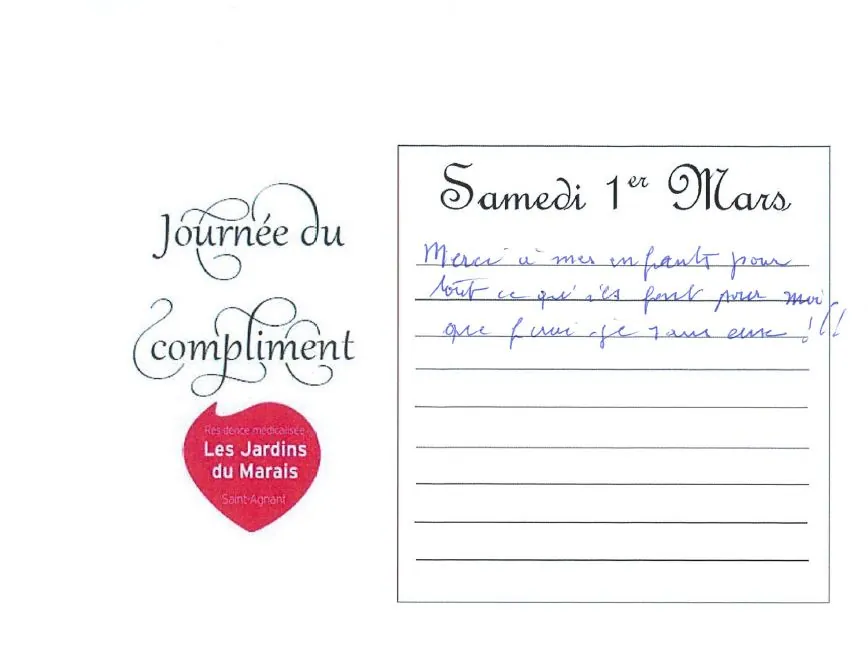 Journée du
compliment
Résidence médicalisée
Les Jardins
du Marais
Saint-Agnant
Samedi 1er Mars
Merci à mes enfants pour
tout ce qu'ils font pour moi
que ferai-je sans eux !!!